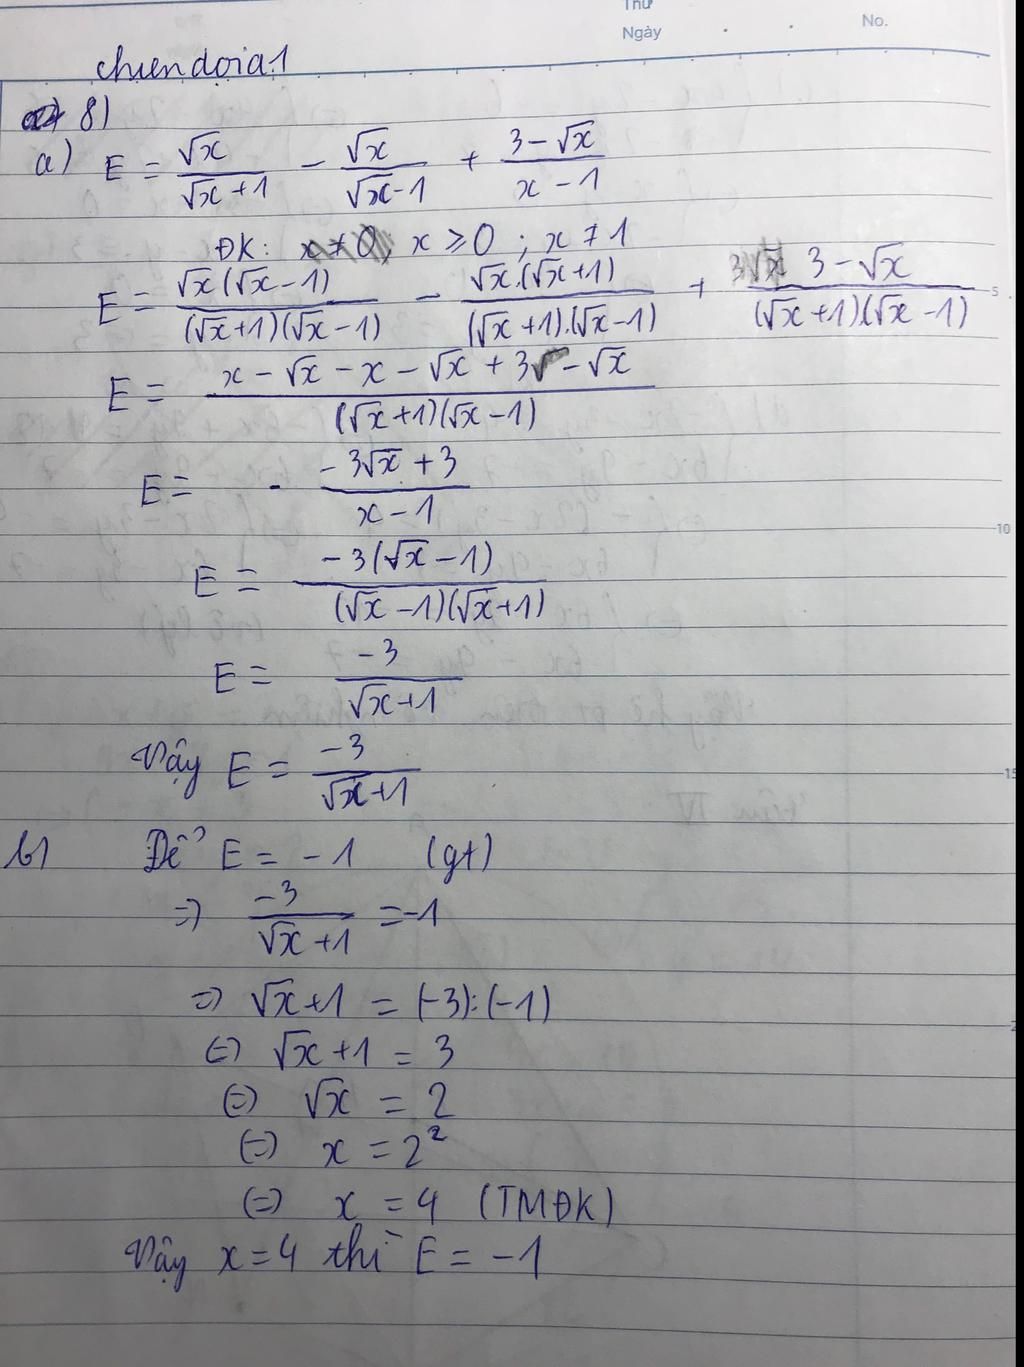 Thứ
Ngày
No.
chiendoia1
8)
a) E = √x/(√x+1) - √x/(√x-1) + (3-√x)/(x-1)
ĐK: x ≠ 0; x ≥ 0 ; x ≠ 1
E = √x(√x-1)/((√x+1)(√x-1)) - √x.(√x+1)/((√x+1).(√x-1)) + (3-√x)/((√x+1).(√x-1))
5
E = (x-√x-x-√x+3-√x)/((√x+1)(√x-1))
E = - (-3√x+3)/(x-1)
10
E = -3(√x-1)/((√x-1)(√x+1))
E = -3/(√x+1)
Vậy E = -3/(√x+1)
15
b) Để E = -1 (gt)
=> -3/(√x+1) = -1
=> √x+1 = (-3):(-1)
(=) √x+1 = 3
(=) √x = 2
(=) x = 2²
(=) x = 4 (TMĐK)
Vậy x=4 thì E = -1